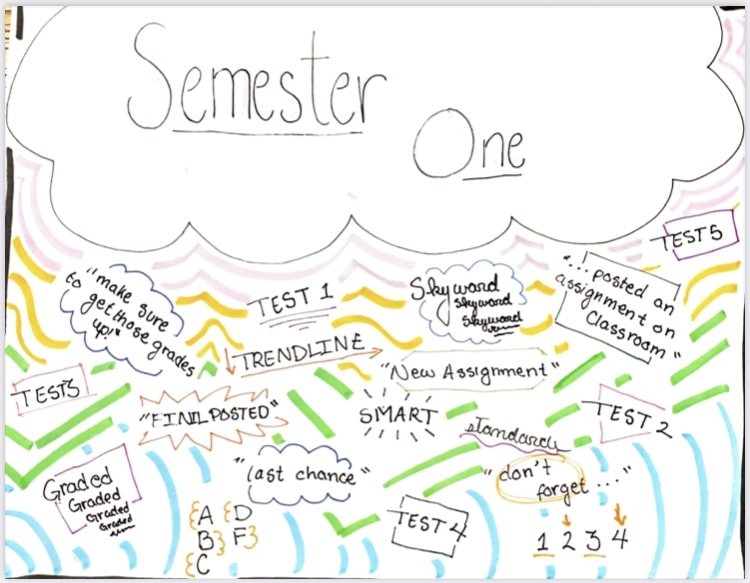 Semester
One
TEST 5
"make sure
to get those grades
up!"
TEST 1
Skyward
Skyward
Skyward
"... posted an
assignment on
Classroom"
TRENDLINE
"New Assignment"
TEST3
"FINAL POSTED"
SMART
standards
TEST 2
Graded
Graded
Graded
Graded
"last chance"
"don't
forget..."
A D
B F
C
TEST 4
1 2 3 4